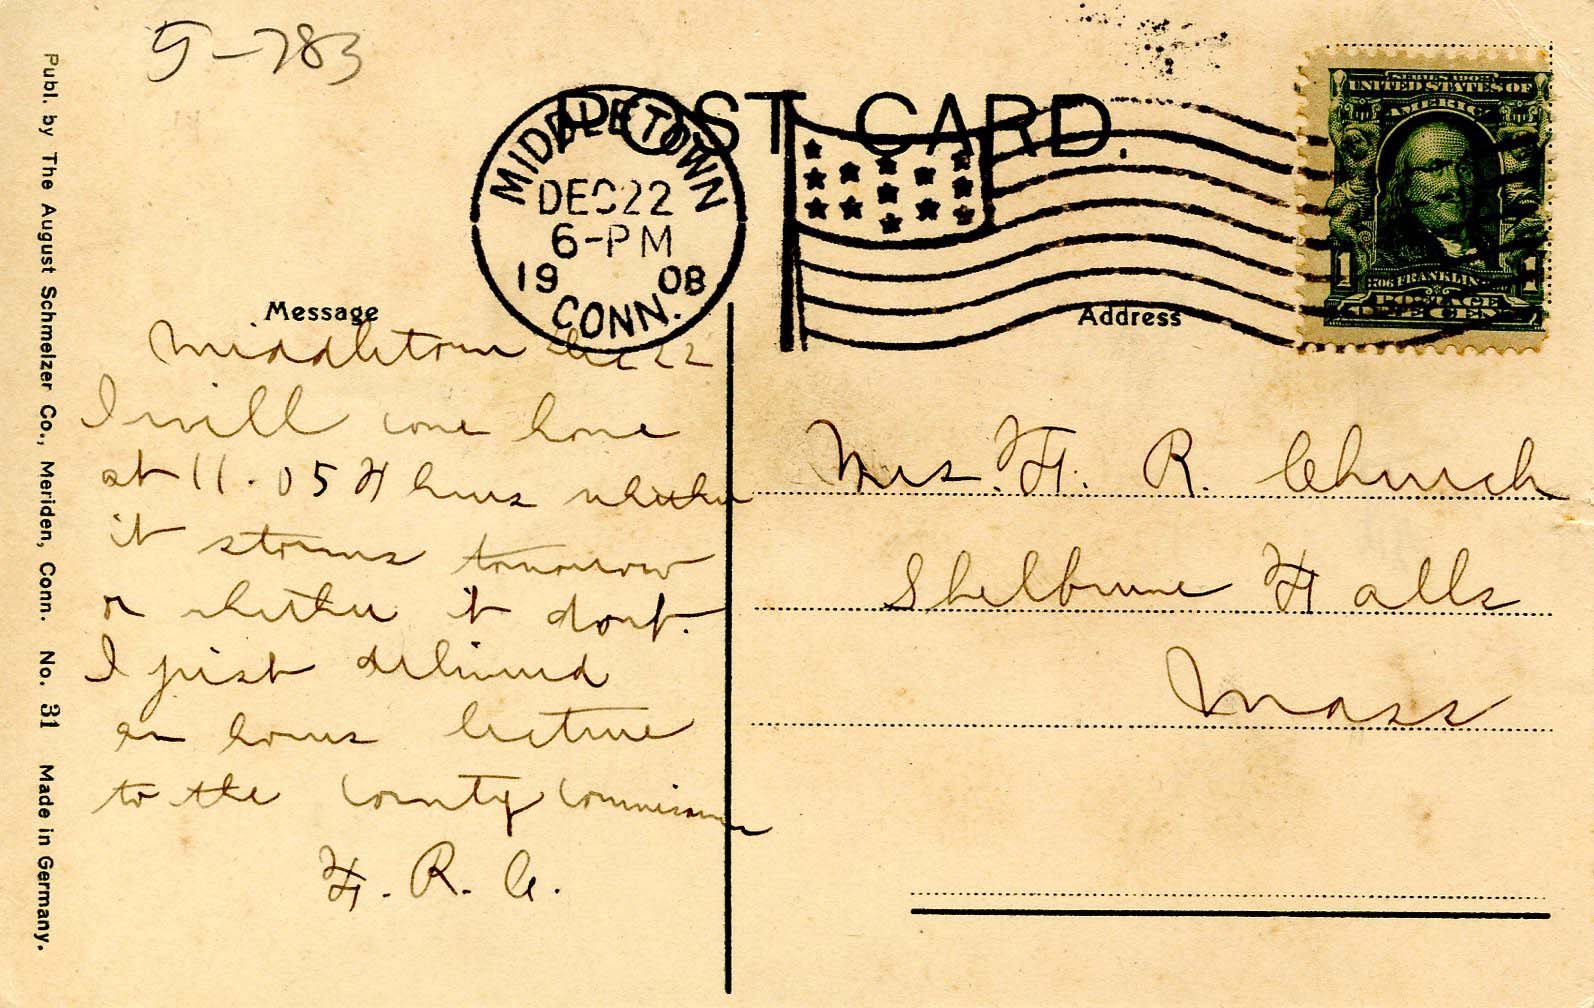 5-783
POST CARD.
MIDDLETOWN
DEC 22
6-PM
1908
CONN.
SERIES 1902
UNITED STATES OF
AMERICA
1 FRANKLIN 1
POSTAGE
Publ. by The August Schmelzer Co., Meriden, Conn. No. 31 Made in Germany.
Message
Middletown Dec 22
I will come home
at 11.05 whether
it storms tomorrow
or whether it dont.
I just delivered
an hours lecture
to the County Commissioners
F. R. C.
Address
Mrs. F. R. Church
Shelburne Falls
Mass